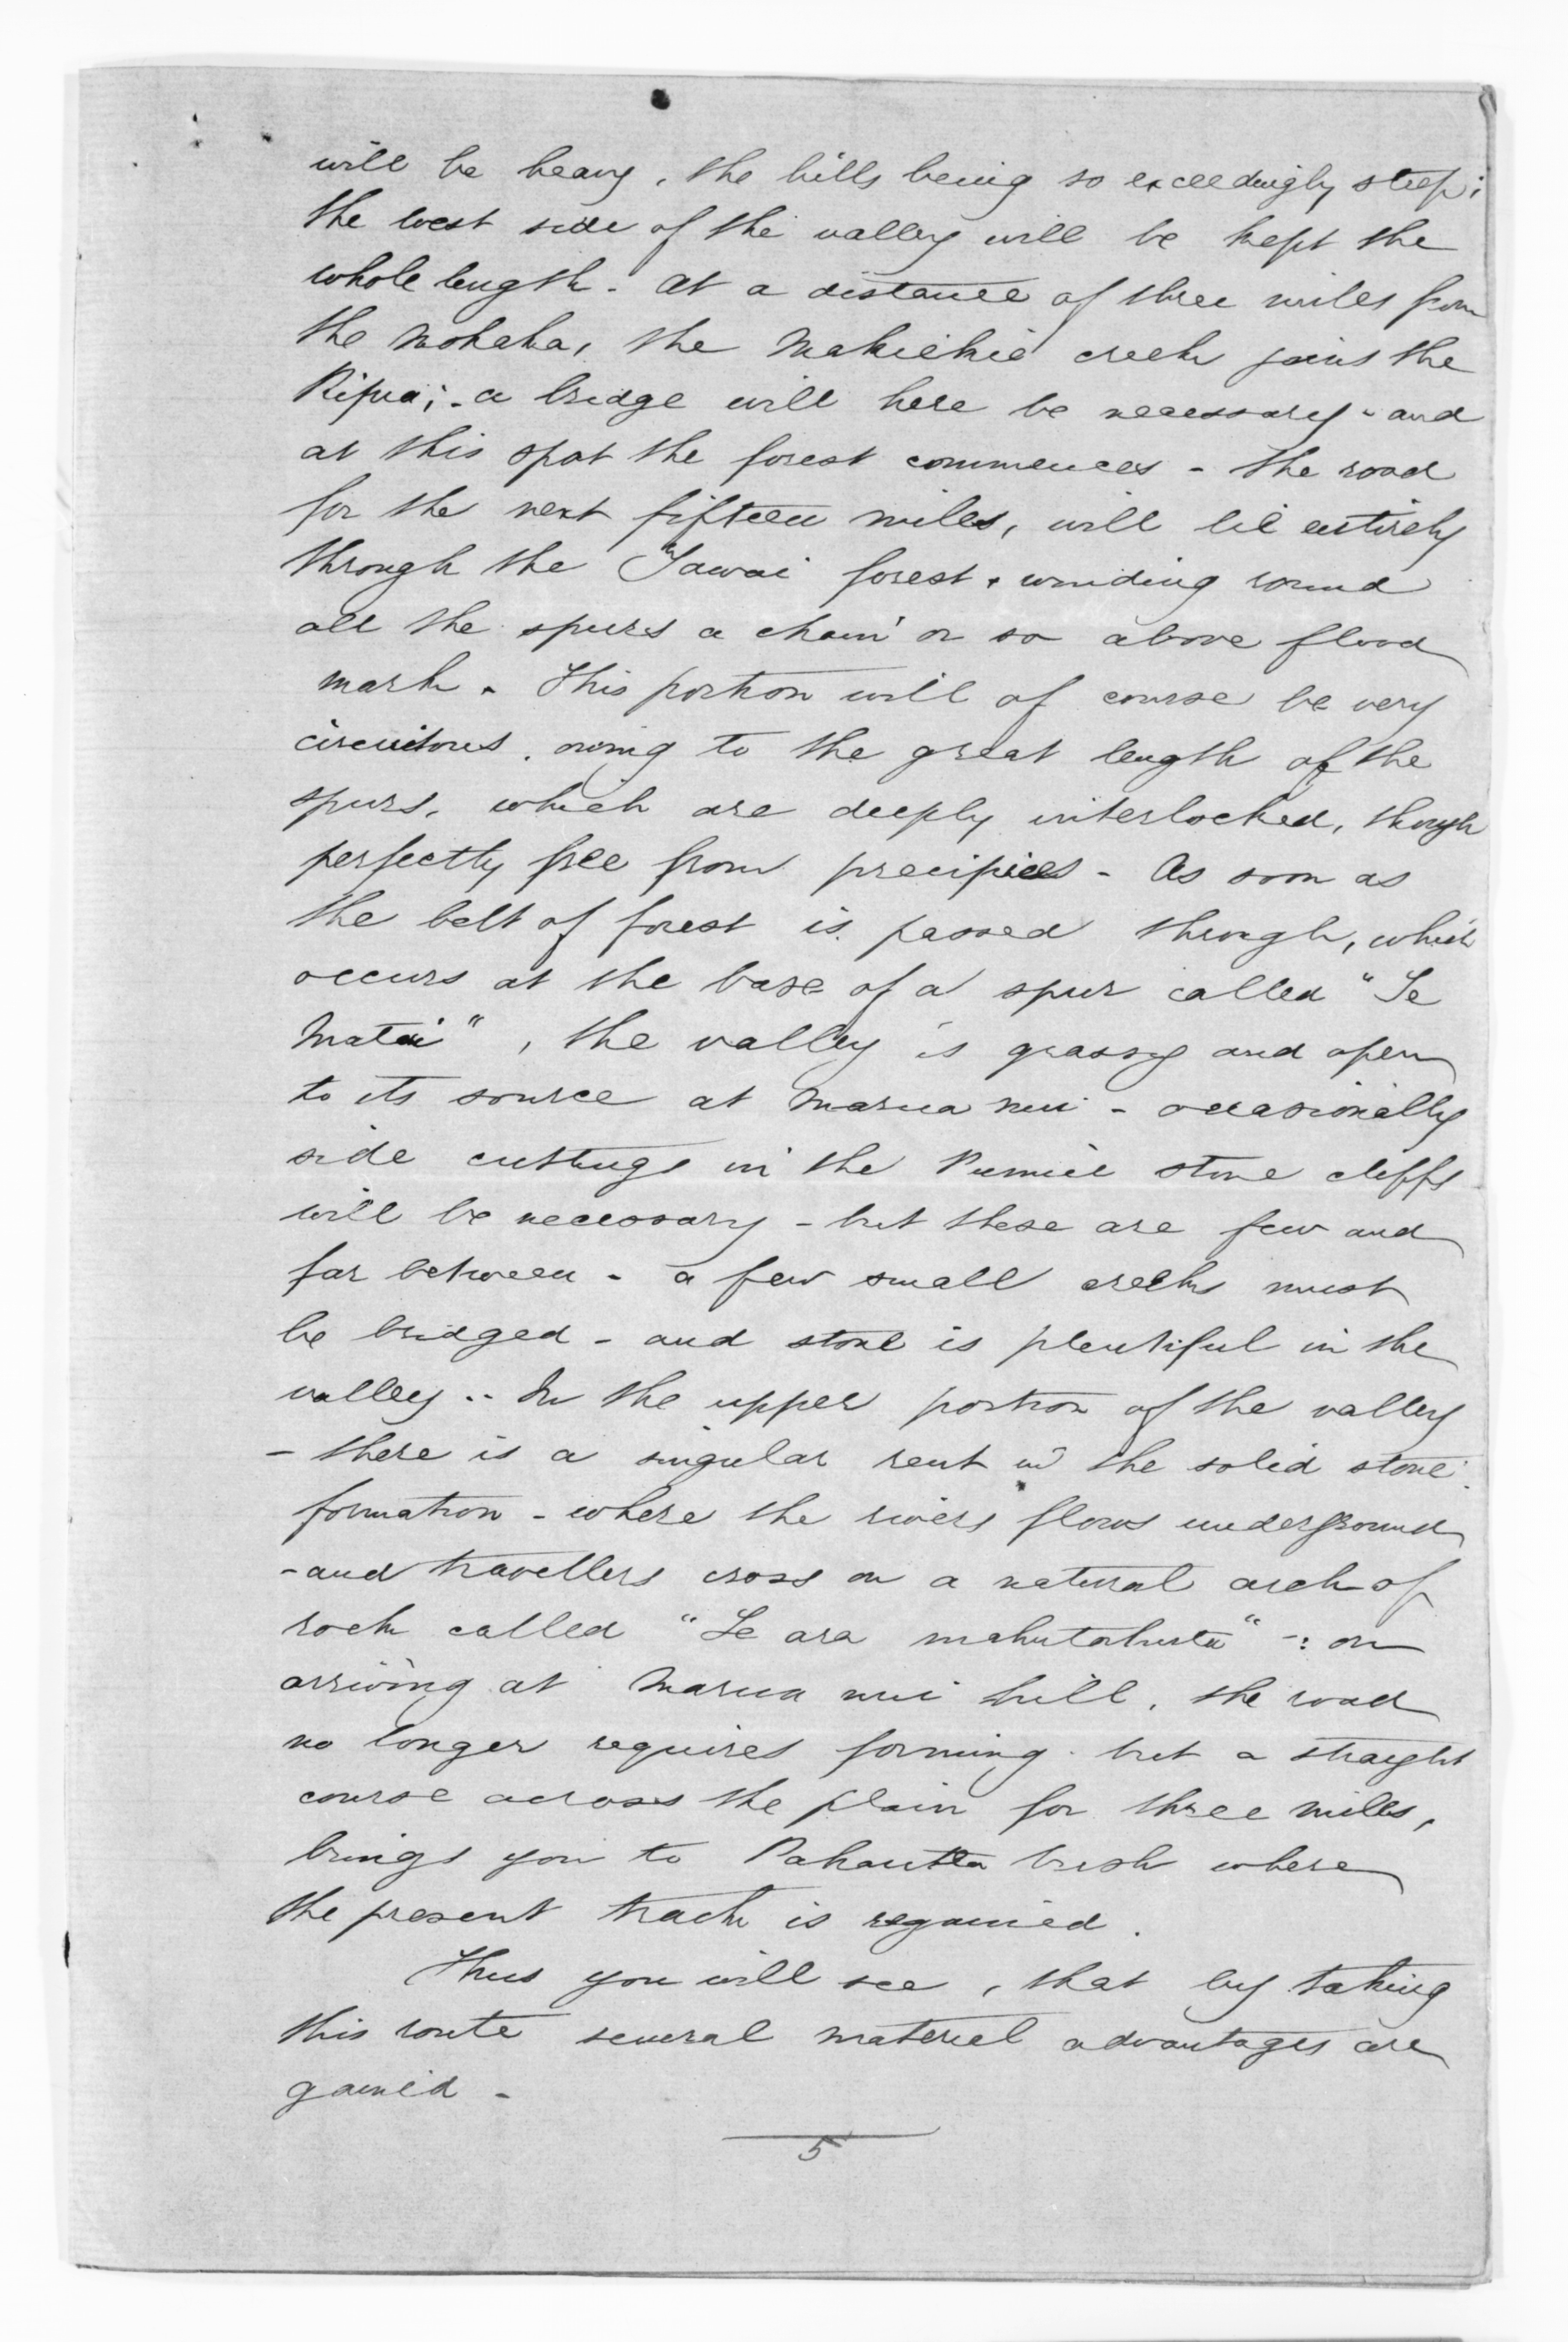 will be heavy, the hills being so exceedingly steep;
the west side of the valley will be kept the
whole length. At a distance of three miles from
the Mohaka, the Makiekie creek joins the
Ripia; - a bridge will here be necessary - and
at this spot the forest commences - The road
for the next fifteen miles, will lie entirely
through the Tawai forest, winding round
all the spurs a chain or so above flood
mark. This portion will of course be very
circuitous, owing to the great length of the
spurs, which are deeply interlocked, though
perfectly free from precipices - As soon as
the belt of forest is passed through, which
occurs at the base of a spur called "Te
Matai", the valley is grassy and open
to its source at Marua nui - occasionally
side cuttings in the Pumice stone cliffs
will be necessary - but these are few and
far between - a few small creeks must
be bridged - and stone is plentiful in the
valley -- In the upper portion of the valley
- there is a singular rent in the solid stone
formation - where the rivers flows underground
- and travellers cross on a natural arch of
rock called "Te ara" -: on
arriving at Marua nui hill, the road
no longer requires forming but a straight
course across the plain for three miles,
brings you to bush where
the present track is regained.
Thus you will see, that by taking
this route several material advantages are
gained -
5